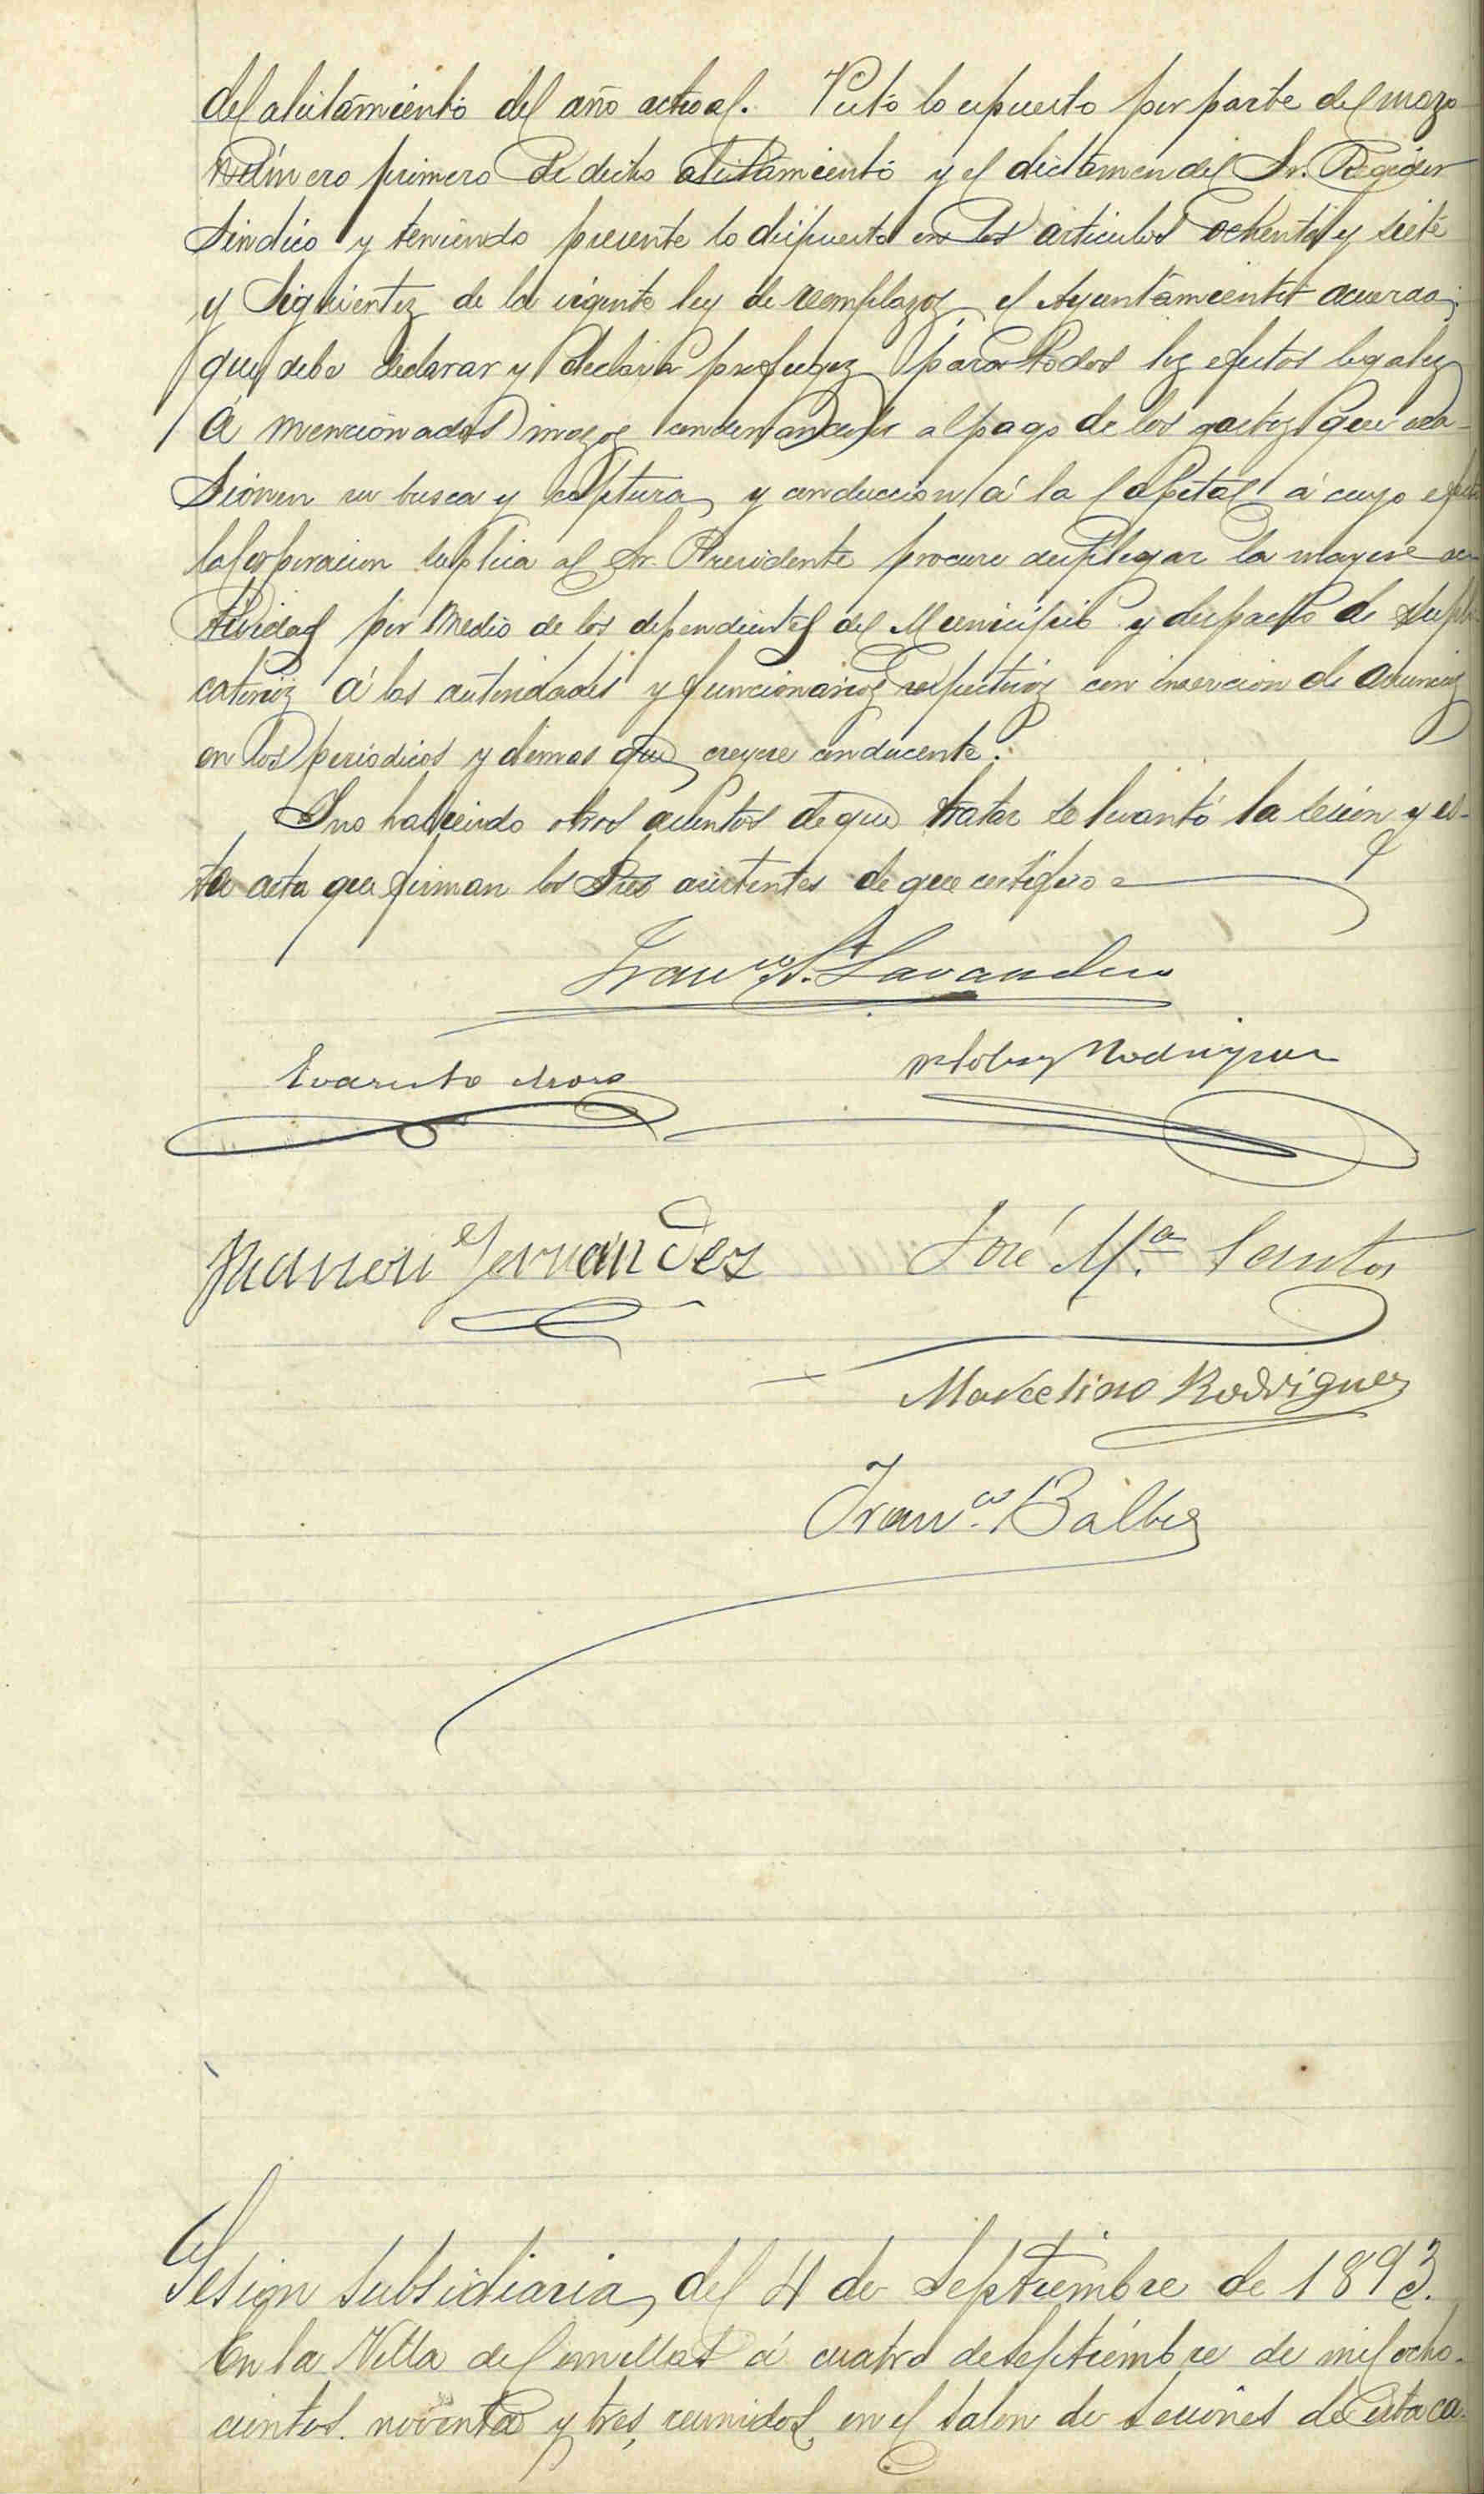 del alistamiento del año actual. Visto lo expuesto por parte del mozo
número primero de dicho alistamiento y el dictamen del Sr. Regidor
Sindico y teniendo presente lo dispuesto en los articulos ochenta y siete
y siguientes de la vigente ley de reemplazos, el Ayuntamiento acuerda:
que debe declarar y declara profugos para todos los efectos legales
á mencionados mozos condenandoles al pago de los gastos que oca-
sionen su busca y captura y conduccion á la Capital á cuyo efecto
la Corporacion suplica al Sr. Presidente procure desplegar la mayor ac-
tividad por medio de los dependientes del Municipio y despacho de supli-
catorios á las autoridades y funcionarios respectivos con insercion de anuncios
en los periodicos y demas que creyere conducente.
Y no habiendo otros asuntos de que tratar se levantó la sesion y es-
ta acta que firman los Sres asistentes de que certifico=
Franco S. Lavandero
Evaristo Moro
Rodriguez
Ramon Fernandez José Ma. Santos
Marcelino Rodriguez
Franco. Balbes
Sesion subsidiaria del 4 de Septiembre de 1893.
En la Villa de Comillas á cuatro de Septiembre de mil ocho-
cientos noventa y tres, reunidos en el salon de sesiones de esta ca-